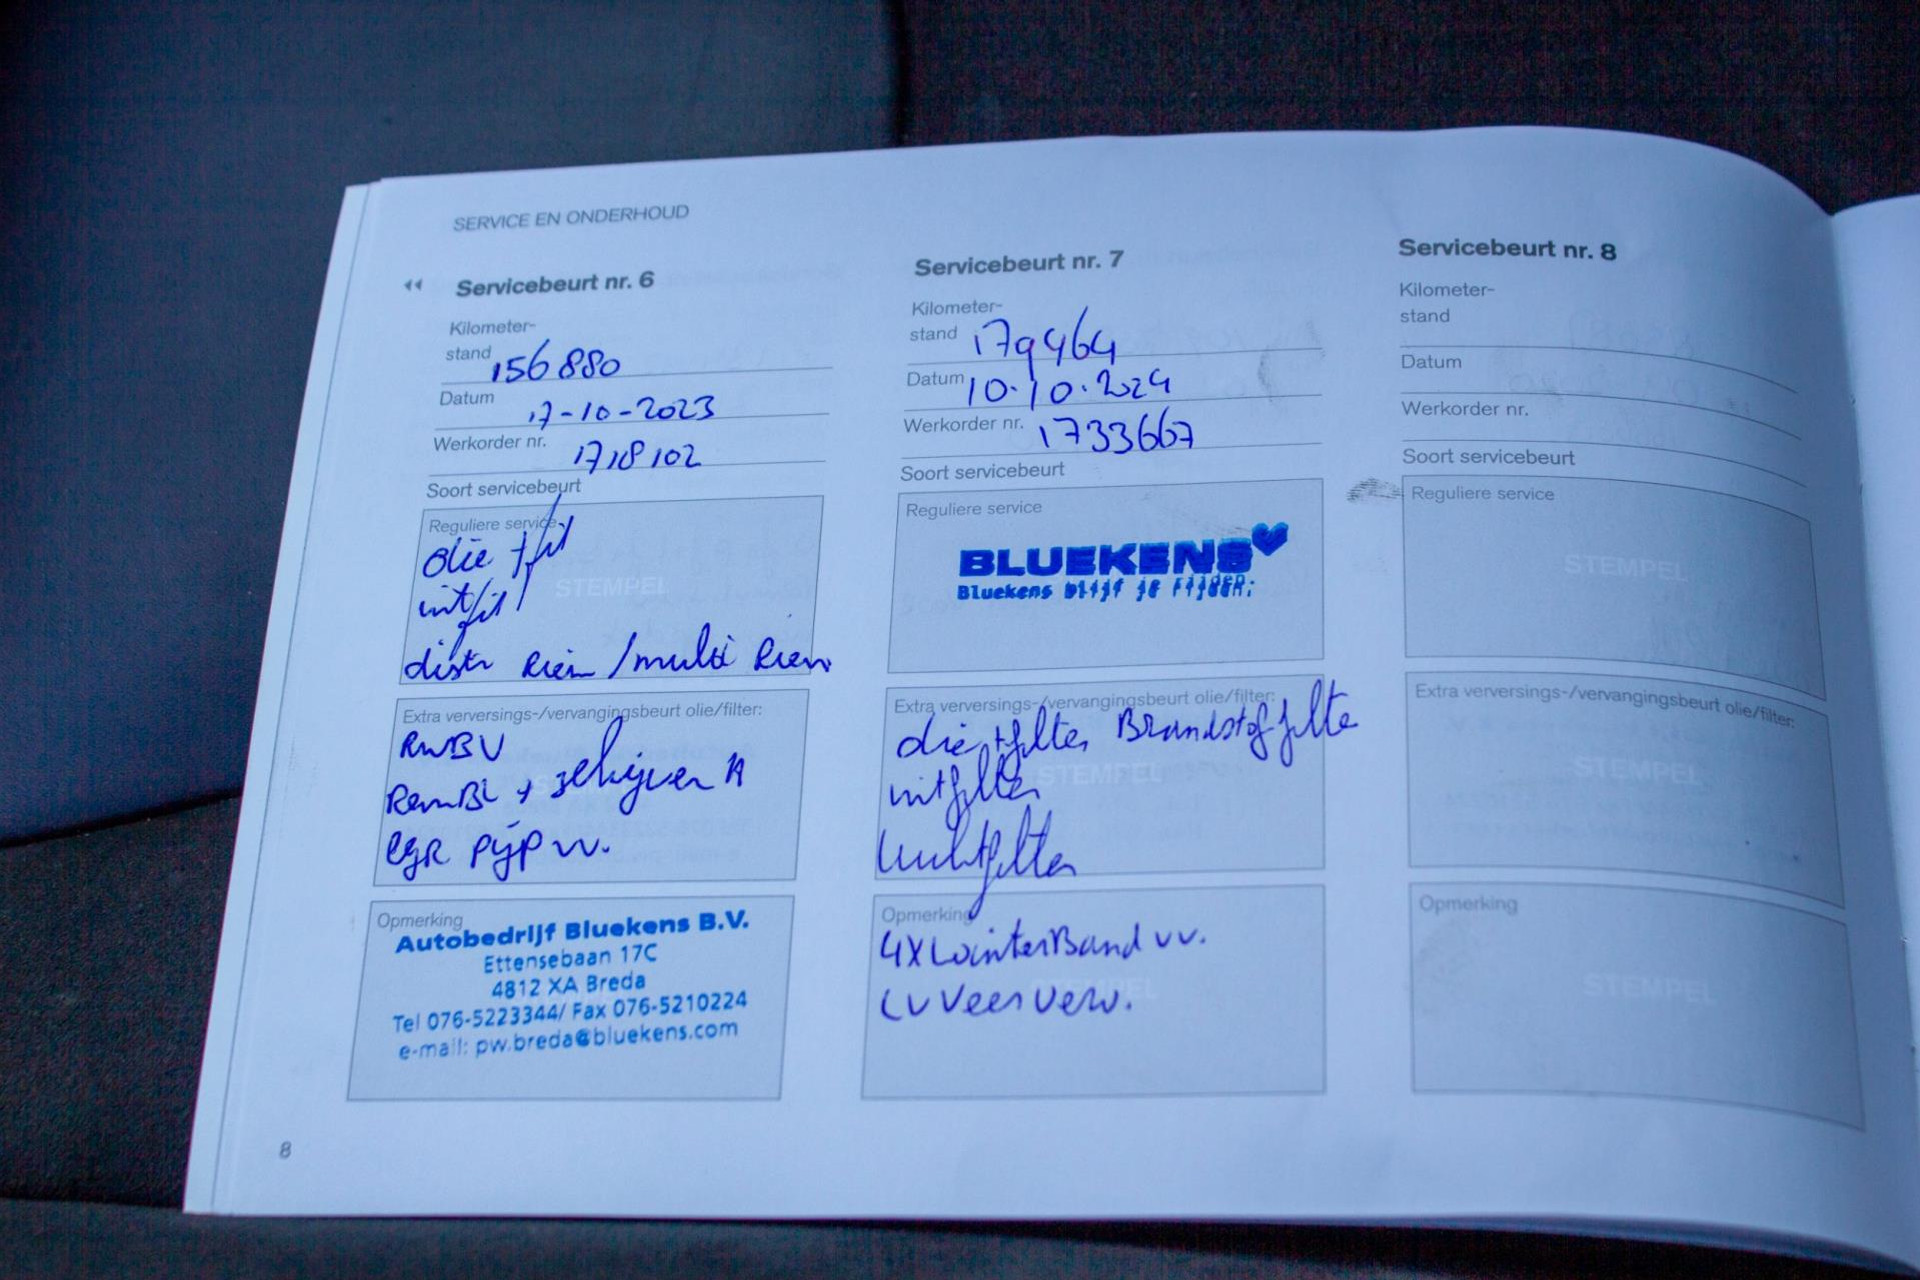 SERVICE EN ONDERHOUD
Servicebeurt nr. 6
Kilometer-
stand 156880
Datum 17-10-2023
Werkorder nr. 1718102
Soort servicebeurt
Reguliere service
olie + fil
intfil
distr Riem / multi Riem
STEMPEL
Extra verversings-/vervangingsbeurt olie/filter:
RWBV
RemBL + schijven A
EGR pijp vv.
Opmerking
Autobedrijf Bluekens B.V.
Ettensebaan 17C
4812 XA Breda
Tel 076-5223344/ Fax 076-5210224
e-mail: pw.breda@bluekens.com
8
Servicebeurt nr. 7
Kilometer-
stand 179464
Datum 10.10.2024
Werkorder nr. 1733667
Soort servicebeurt
Reguliere service
BLUEKENS
Bluekens blijf je rijden.
Extra verversings-/vervangingsbeurt olie/filter:
olie + filter Brandstoffilte
intfilter
STEMPEL
luchtfilter
Opmerking
4X WinterBand vv.
LV Veer Verv.
Servicebeurt nr. 8
Kilometer-
stand
Datum
Werkorder nr.
Soort servicebeurt
Reguliere service
STEMPEL
Extra verversings-/vervangingsbeurt olie/filter:
STEMPEL
Opmerking
STEMPEL